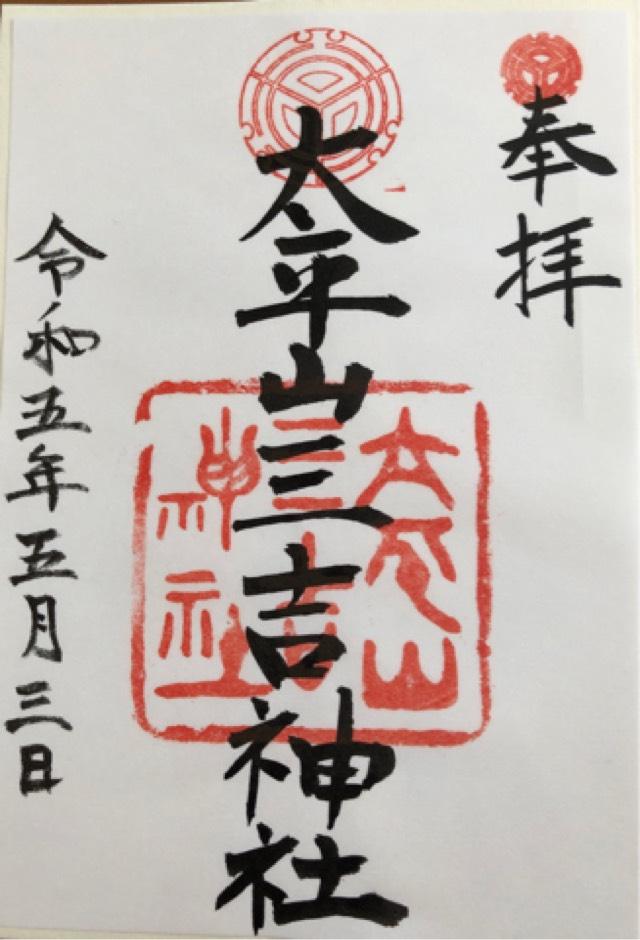 奉拝
太平山三吉神社
太平山
三吉
神社
令和五年五月三日